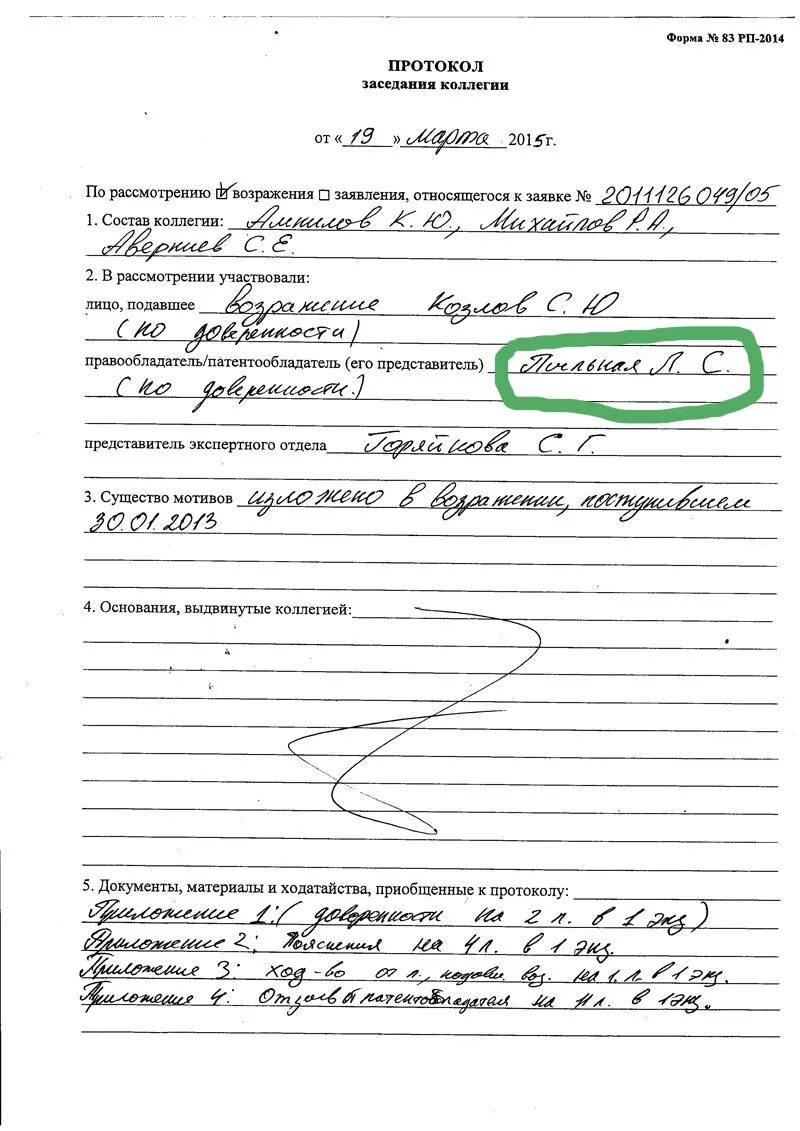 Форма № 83 РП-2014
ПРОТОКОЛ
заседания коллегии
от « 19 » марта 2015г.
По рассмотрению ☑ возражения ☐ заявления, относящегося к заявке № 2011126049/05
1. Состав коллегии: Ампилов К. Ю., Михайлов Р.А.,
Аверкиев С. Е.
2. В рассмотрении участвовали:
лицо, подавшее возражение Козлов С. Ю
(по доверенности)
правообладатель/патентообладатель (его представитель) Пчельная Л. С.
(по доверенности.)
представитель экспертного отдела Горяйнова С. Г.
3. Существо мотивов изложено в возражении, поступившем
30.01.2013
4. Основания, выдвинутые коллегией:
5. Документы, материалы и ходатайства, приобщенные к протоколу:
Приложение 1: ( доверенности на 2 л. в 1 экз)
Приложение 2: Пояснения на 4 л. в 1 экз.
Приложение 3: ход-во от л., подавш. воз. на 1 л. в 1 экз.
Приложение 4: Отзыв патентообладателя на 11 л. в 1 экз.